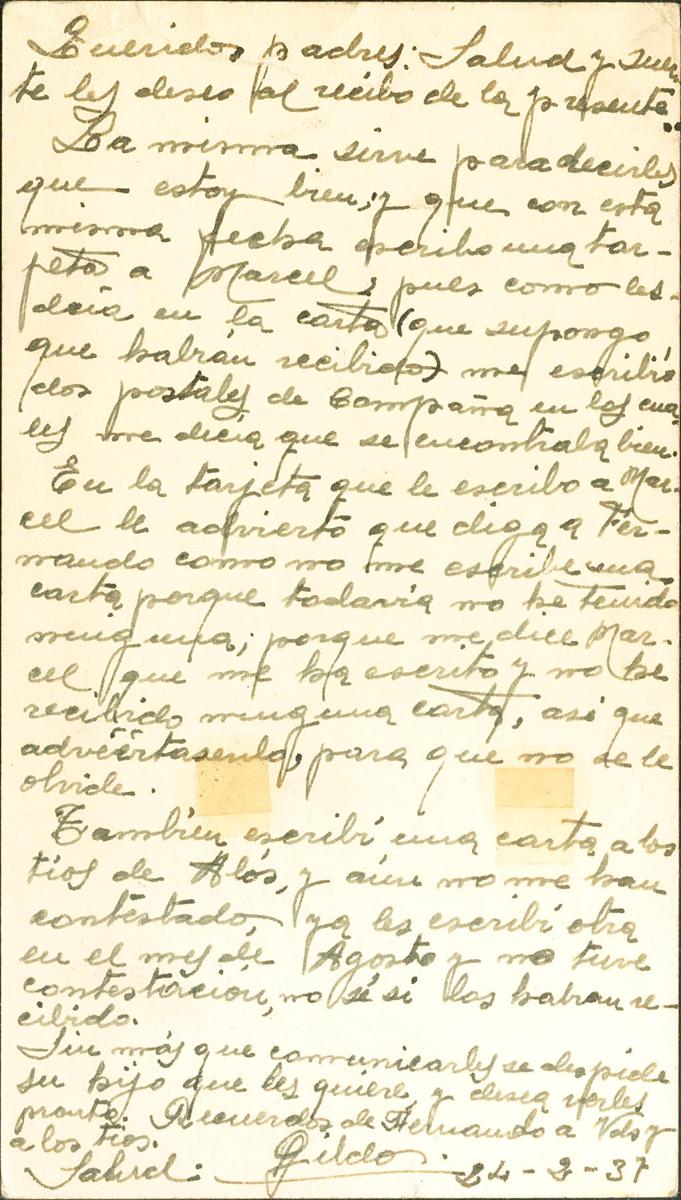 Queridos padres: Salud y suer
te les deseo al recibo de la presente..
La misma sirve para decirles
que estoy bien; y que con esta
misma fecha escribo una tar-
jeta a Marcel; pues como les-
decia en la carta (que supongo
que habrán recibido) me escribió
dos postales de Campaña en las cua
les me decía que se encontraba bien.
En la tarjeta que le escribo a Mar-
cel le advierto que diga a Fer-
nando como no me escribe una
carta porque todavía no he tenido
ninguna; porque me dice Mar-
cel que me ha escrito y no he
recibido ninguna carta, asi que
adviértasenlo, para que no se le
olvide.
También escribí una carta a los
tios de Alós, y aún no me han
contestado, ya les escribí otra
en el mes de Agosto y no tuve
contestación, no sé si las habran re-
cibido.
Sin más que comunicarles se despide
su hijo que les quiere y desea verles
pronto. Recuerdos de Fernando a Vds y
a los tios.
Salud: Gildo. 24-2-37